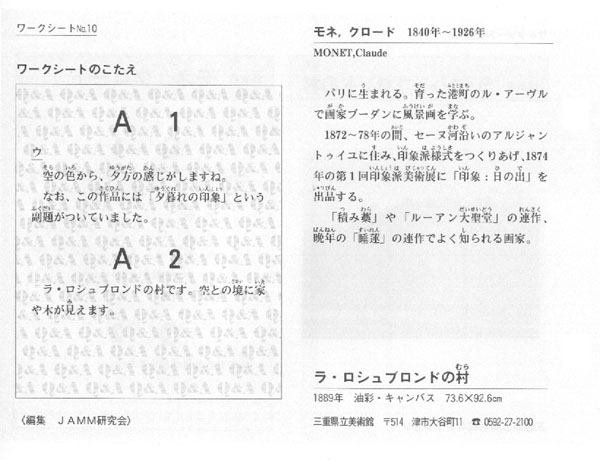 ワークシート№10
ワークシートのこたえ
A 1
ウ
空の色から、夕方の感じがしますね。
なお、この作品には「夕暮れの印象」という
副題がついていました。
A 2
ラ・ロシュブロンドの村です。空との境に家
や木が見えます。
〈編集 JAMM研究会〉
モネ，クロード 1840年～1926年
MONET,Claude
パリに生まれる。育った港町のル・アーヴル
で画家ブーダンに風景画を学ぶ。
1872～78年の間、セーヌ河沿いのアルジャン
トゥイユに住み、印象派様式をつくりあげ、1874
年の第1回印象派美術展に「印象：日の出」を
出品する。
「積み藁」や「ルーアン大聖堂」の連作、
晩年の「睡蓮」の連作でよく知られる画家。
ラ・ロシュブロンドの村
1889年 油彩・キャンバス 73.6×92.6㎝
三重県立美術館 〒514 津市大谷町11 ☎0592-27-2100